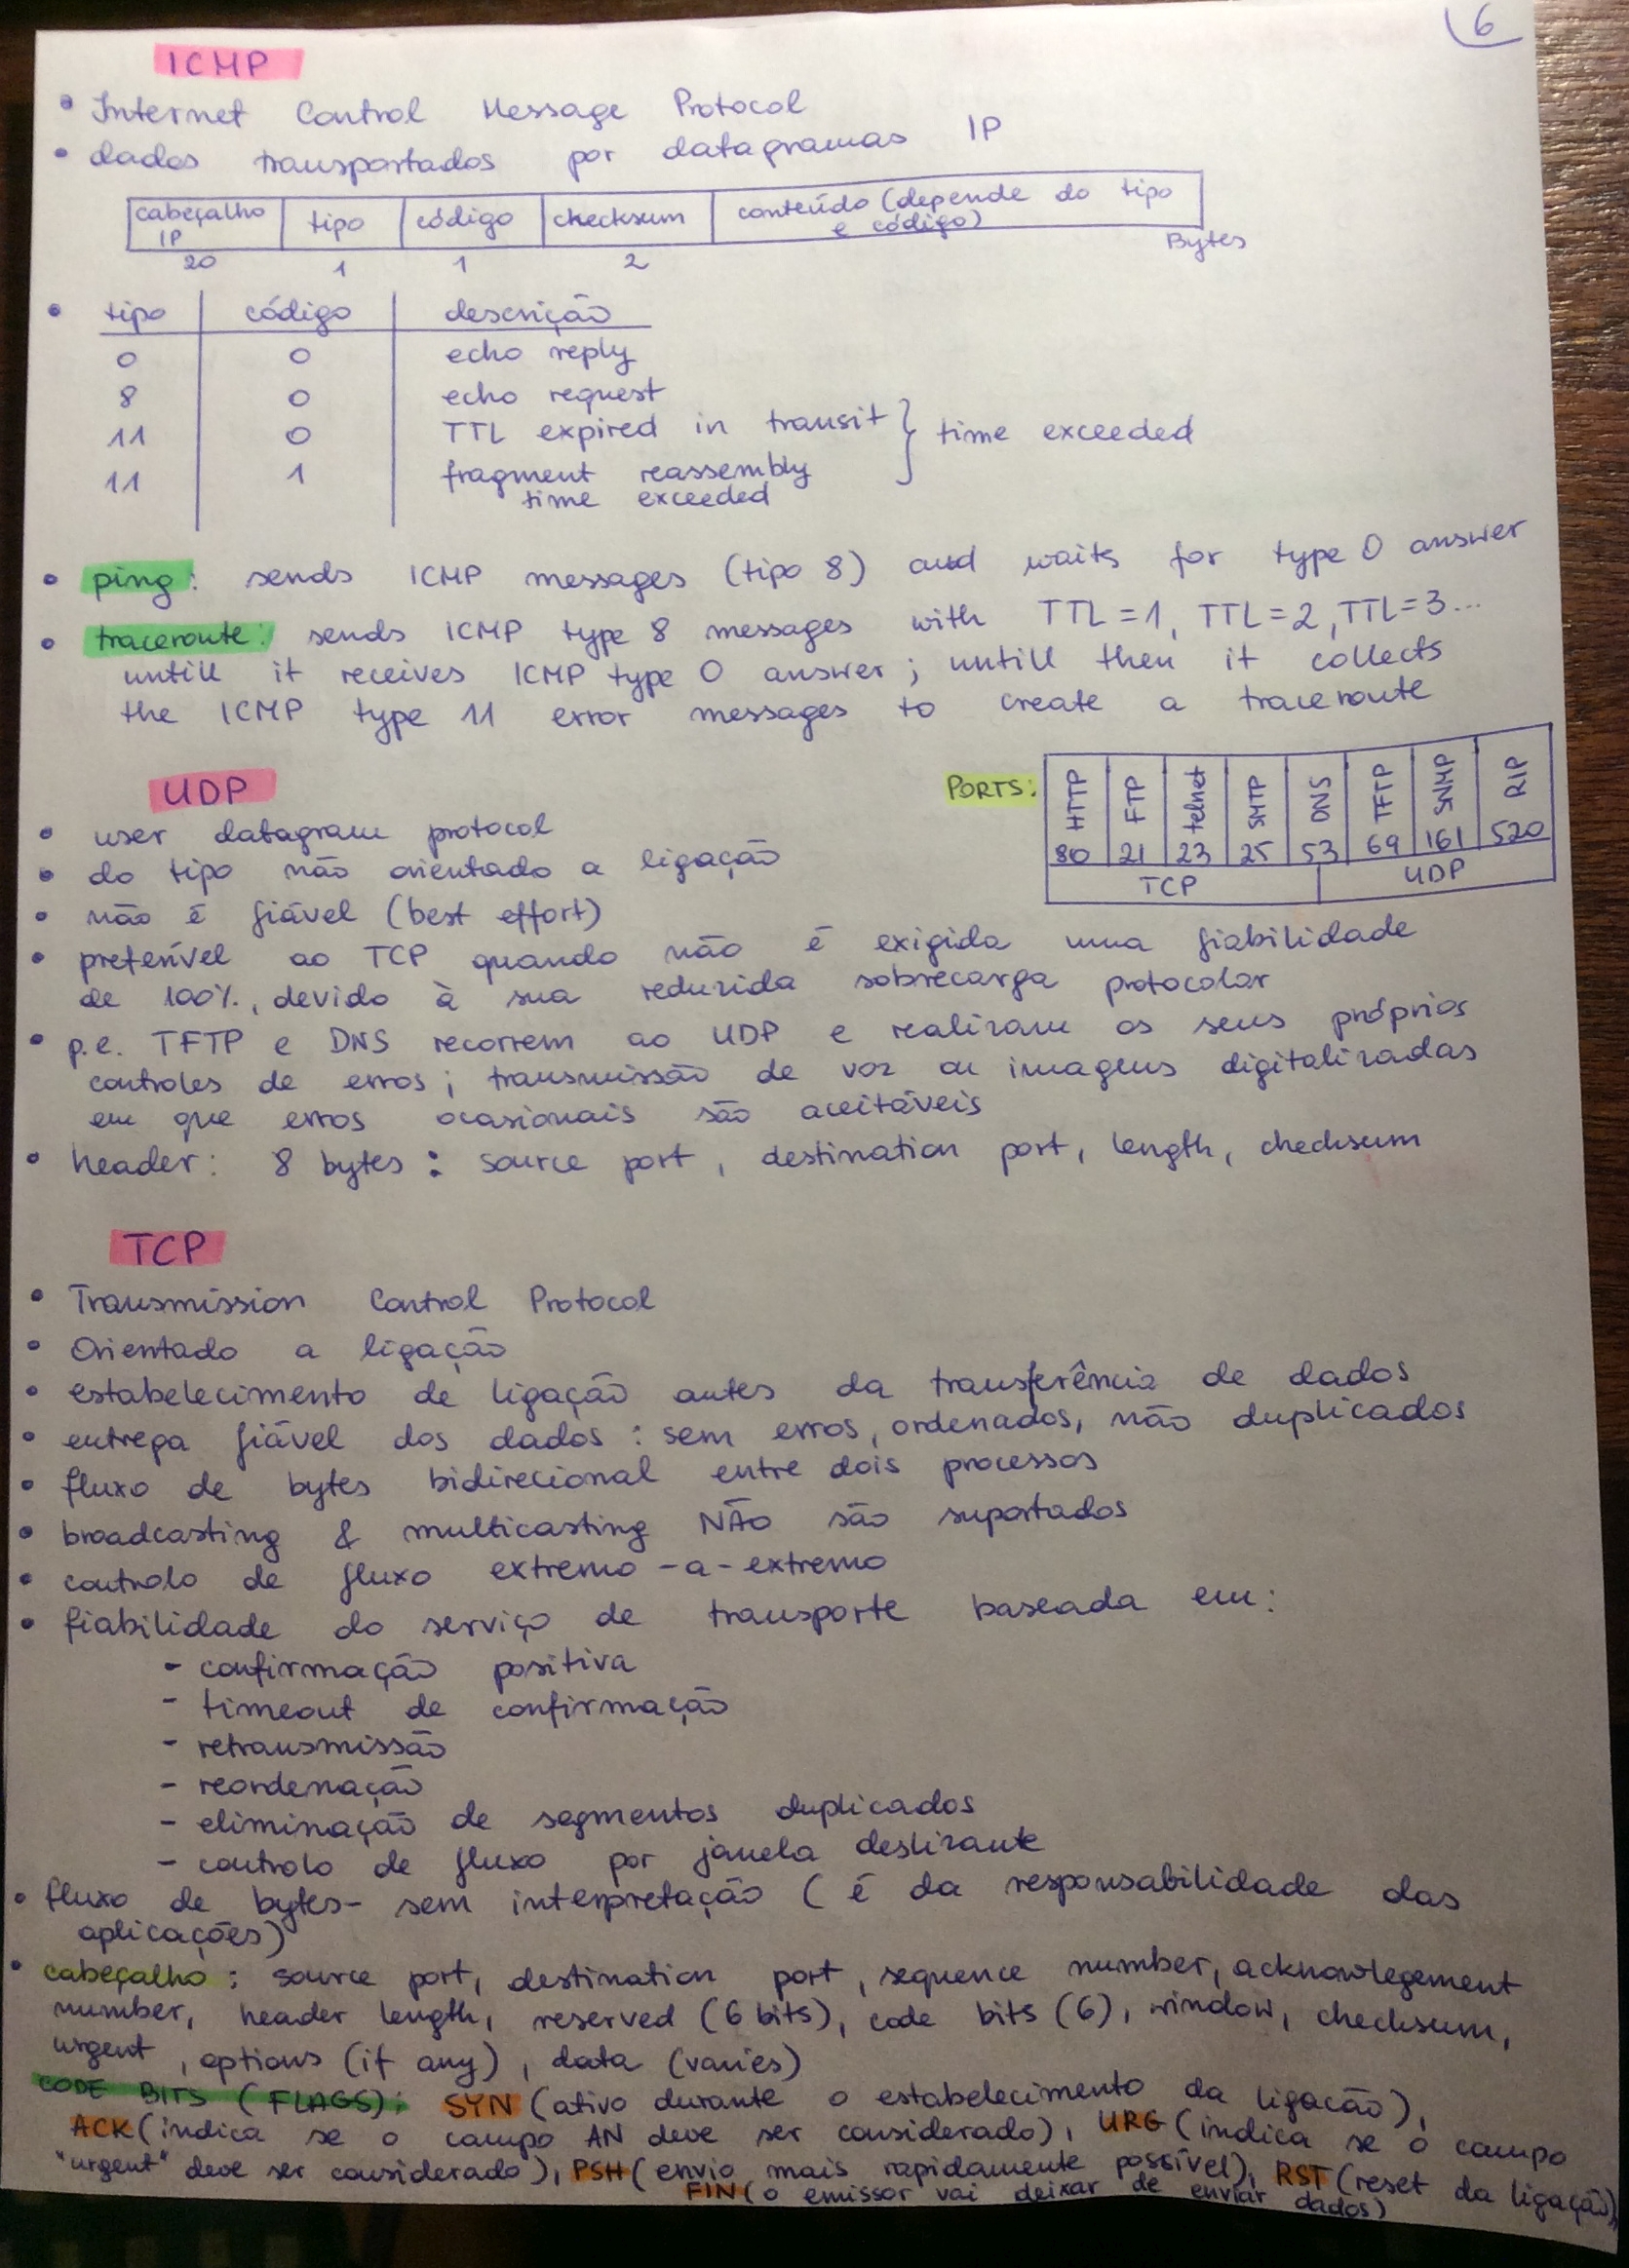 6
ICMP
• Internet Control Message Protocol
• dados transportados por datagramas IP
cabeçalho IP | tipo | código | checksum | conteúdo (depende do tipo e código)
20 1 1 2 Bytes
• tipo | código | descrição
0 | 0 | echo reply
8 | 0 | echo request
11 | 0 | TTL expired in transit } time exceeded
11 | 1 | fragment reassembly
time exceeded
• ping: sends ICMP messages (tipo 8) and waits for type 0 answer
• traceroute: sends ICMP type 8 messages with TTL=1, TTL=2, TTL=3...
untill it receives ICMP type 0 answer; untill then it collects
the ICMP type 11 error messages to create a traceroute
PORTS:
HTTP | FTP | telnet | SMTP | DNS | TFTP | SNMP | RIP
80 | 21 | 23 | 25 | 53 | 69 | 161 | 520
TCP | UDP
UDP
• user datagram protocol
• do tipo não orientado a ligação
• não é fiável (best effort)
• preterível ao TCP quando não é exigida uma fiabilidade
de 100%, devido à sua reduzida sobrecarga protocolar
• p.e. TFTP e DNS recorrem ao UDP e realizam os seus próprios
controles de erros; transmissão de voz ou imagens digitalizadas
em que erros ocasionais são aceitáveis
• header: 8 bytes: source port, destination port, length, checksum
TCP
• Transmission Control Protocol
• Orientado a ligação
• estabelecimento de ligação antes da transferência de dados
• entrega fiável dos dados: sem erros, ordenados, não duplicados
• fluxo de bytes bidirecional entre dois processos
• broadcasting & multicasting NÃO são suportados
• controlo de fluxo extremo-a-extremo
• fiabilidade do serviço de transporte baseada em:
- confirmação positiva
- timeout de confirmação
- retransmissão
- reordenação
- eliminação de segmentos duplicados
- controlo de fluxo por janela deslizante
• fluxo de bytes- sem interpretação (é da responsabilidade das
aplicações)
• cabeçalho: source port, destination port, sequence number, acknowlegement
number, header length, reserved (6 bits), code bits (6), window, checksum,
urgent, options (if any), data (varies)
CODE BITS (FLAGS): SYN (ativo durante o estabelecimento da ligação),
ACK (indica se o campo AN deve ser considerado), URG (indica se o campo
"urgent" deve ser considerado), PSH (envio mais rapidamente possível), RST (reset da ligação),
FIN (o emissor vai deixar de enviar dados)